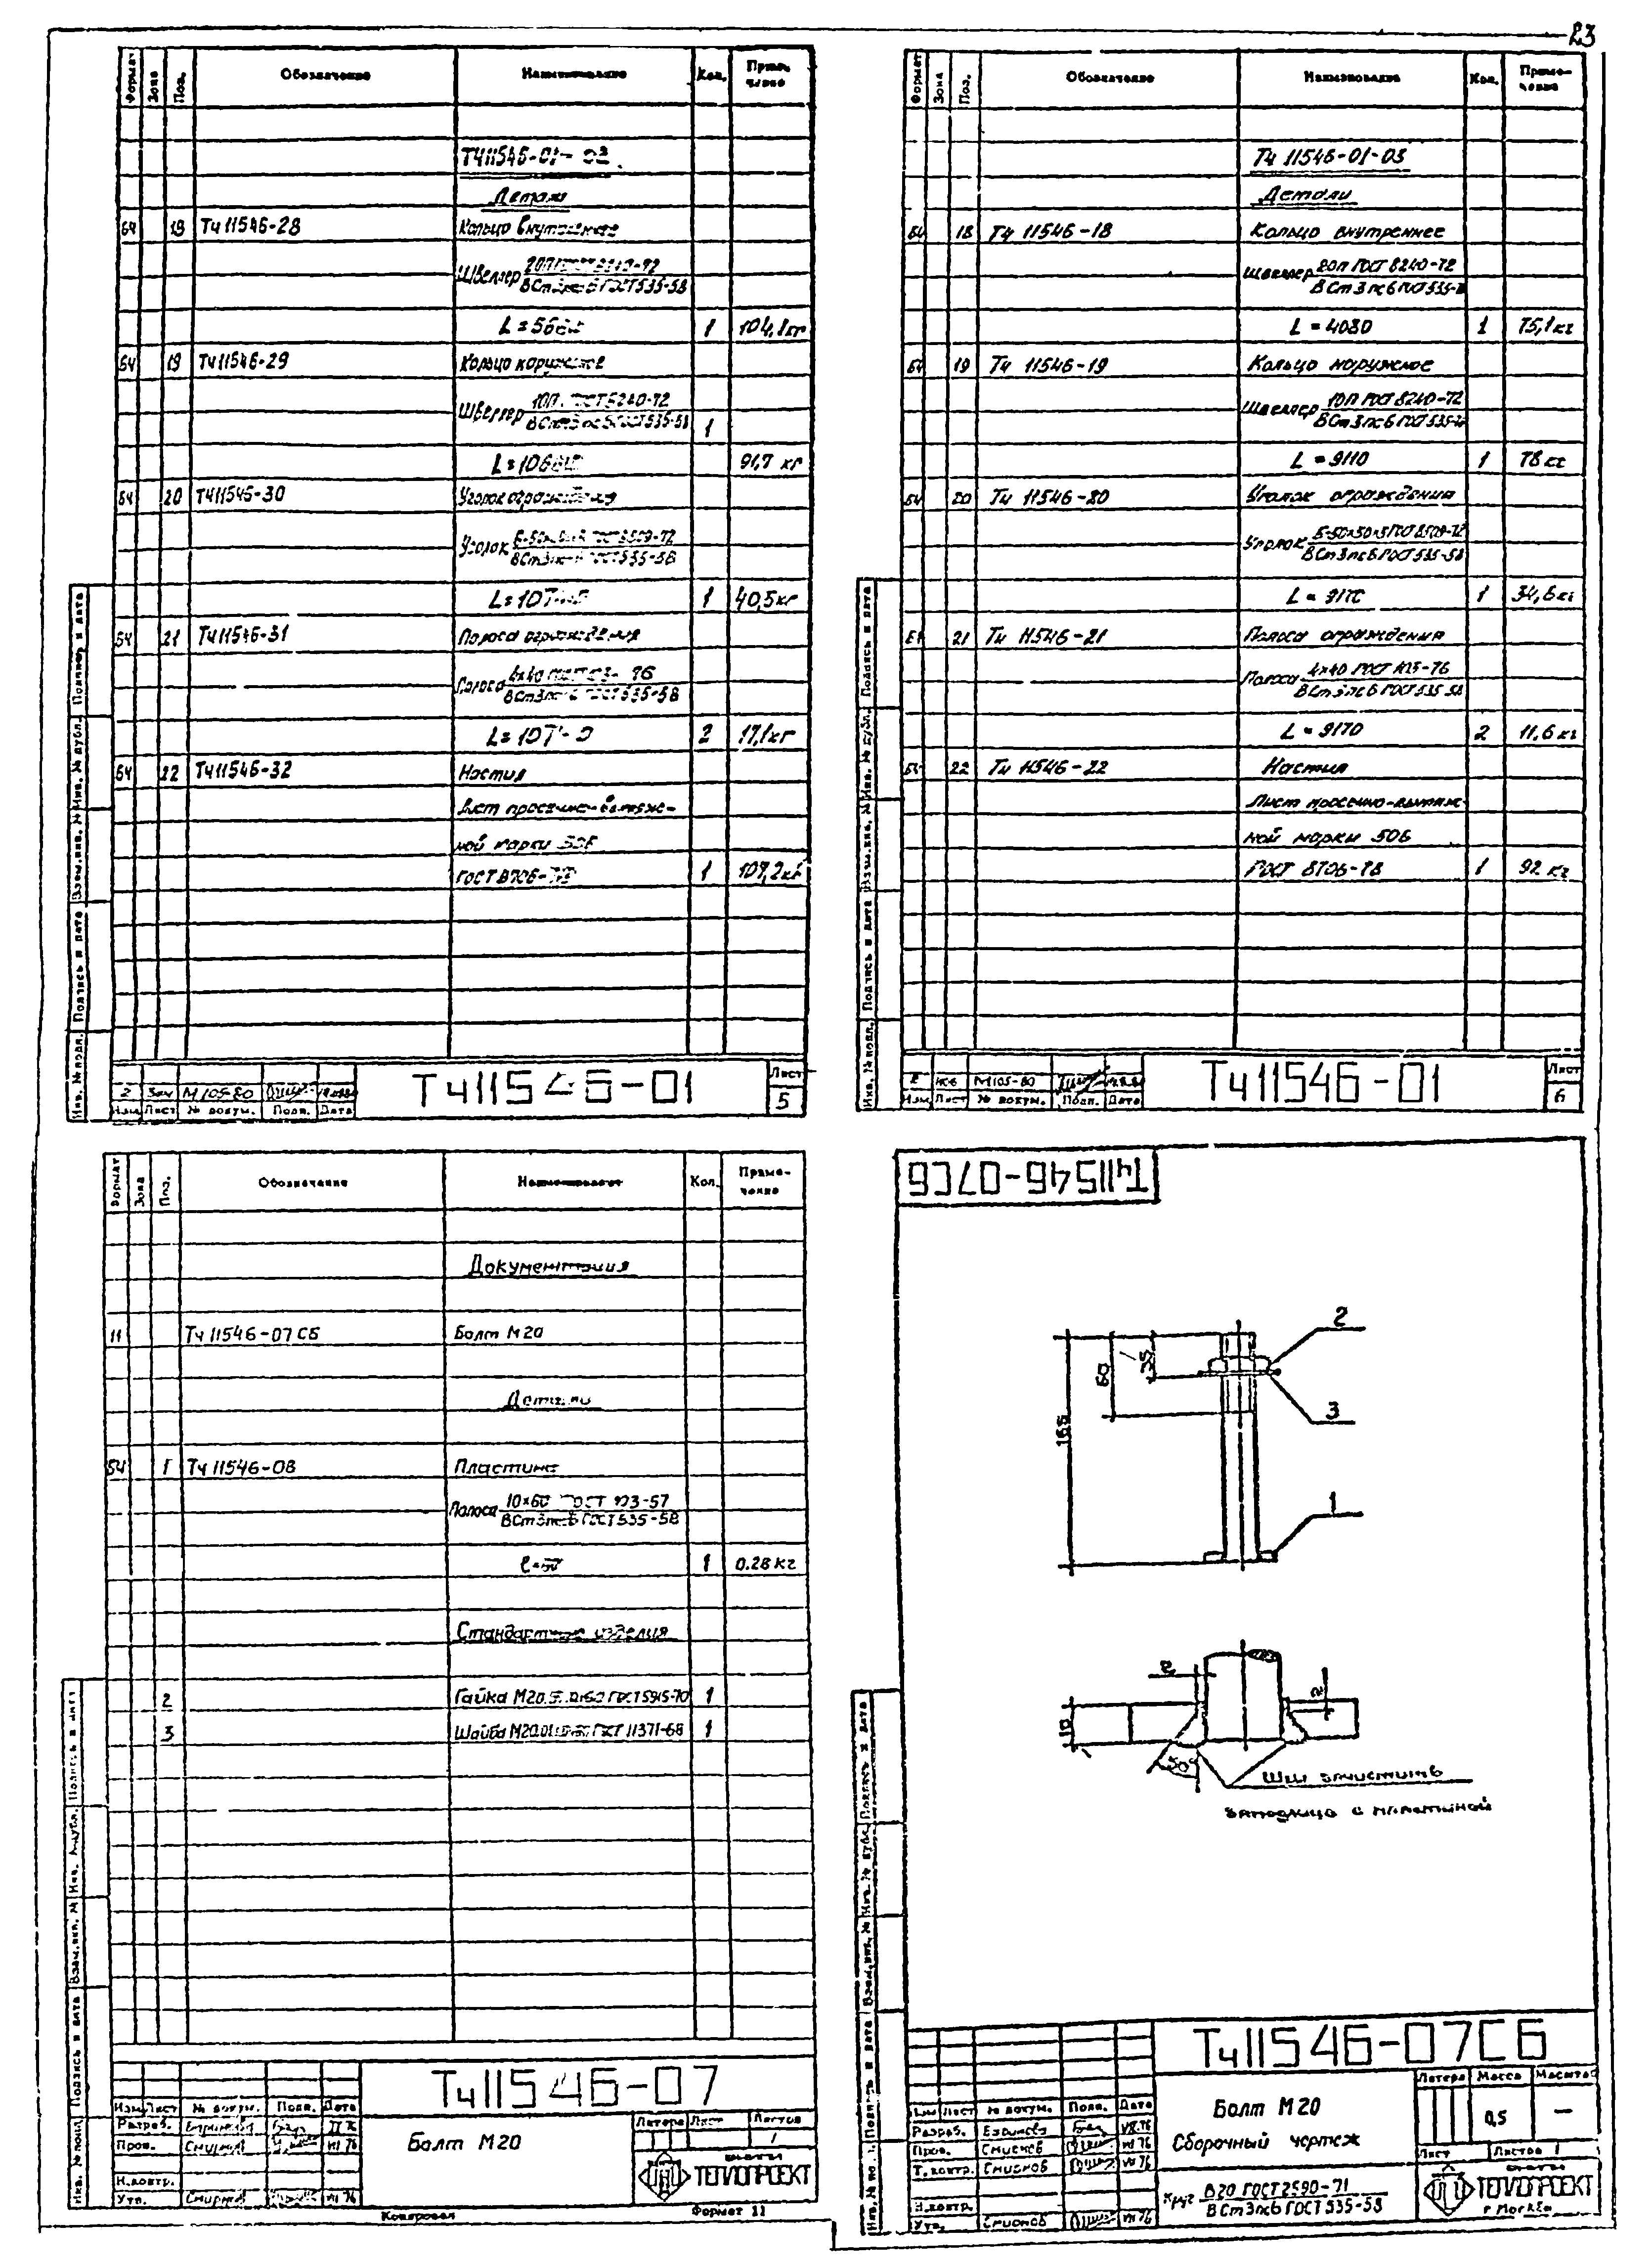 23
Формат Зона Поз. Обозначение Наименование Кол. Приме-
чание
ТЧ11546-01-
Детали
Б4 Тч11546-28 Кольцо внутреннее
Швеллер
ВСт3пс6 ГОСТ 535-58
1 104,1кг
Б4 19 Тч11546-29 Кольцо наружное
Швеллер 10П ГОСТ 8240-72
ВСт3пс6 ГОСТ 535-58 1
91,7 кг
Б4 20 ТЧ11546-30 Уголок ограждения
Уголок
ВСт3пс6 ГОСТ 535-58
1 40,5кг
Б4 21 Тч11546-31 Полоса ограждения
Полоса 4х40
ВСт3пс6 ГОСТ 535-58
2 17,1кг
Б4 22 Тч11546-32 Настил
Лист просечно-вытяж-
ной марки
ГОСТ 8706- 1 107,2кг
2 Зам М105-80
Изм Лист № докум. Подп. Дата
Тч11546-01
Лист
5
Инв. № подл. Подпись и дата Взам.инв. № Инв. № дубл. Подпись и дата
Формат Зона Поз. Обозначение Наименование Кол. Приме-
чание
Тч 11546-01-03
Детали
Б4 18 Тч 11546-18 Кольцо внутреннее
Швеллер 20П ГОСТ 8240-72
ВСт3пс6 ГОСТ 535-
L = 4080 1 75,1кг
Б4 19 Тч 11546-19 Кольцо наружное
Швеллер 10П ГОСТ 8240-72
ВСт3пс6 ГОСТ 535-
L = 9110 1 78 кг
Б4 20 Тч 11546-20 Уголок ограждения
Уголок Б-50х50х5 ГОСТ 8509-72
ВСт3пс6 ГОСТ 535-58
L = 9170 1 34,6кг
Б4 21 Тч 11546-21 Полоса ограждения
Полоса 4х40 ГОСТ 103-76
ВСт3пс6 ГОСТ 535-58
L = 9170 2 11,6 кг
Б4 22 Тч 11546-22 Настил
Лист просечно-вытяж-
ной марки 506
ГОСТ 8706-78 1 92 кг
2 М105-80
Изм Лист № докум. Подп. Дата
Тч11546-01
Лист
6
Инв. № подл. Подпись и дата Взам.инв. № Инв. № дубл. Подпись и дата
Формат Зона Поз. Обозначение Наименование Кол. Приме-
чание
Документация
11 Тч 11546-07СБ Болт М20
Детали
Б4 1 Тч 11546-08 Пластина
Полоса 10х60 ГОСТ 103-57
ВСт3пс6 ГОСТ 535-58
1 0.28 кг
Стандартные изделия
2 Гайка М20. ГОСТ 5915-70 1
3 Шайба М20. ГОСТ 11371-68 1
Изм Лист № докум. Подп. Дата
Разраб.
Пров. Смирнов VII 76
Н.контр.
Утв. Смирнов VII 76
Тч11546-07
Болт М20
Литера Лист Листов
1
ТЕПЛОПРОЕКТ
Копировал Формат 11
Инв. № подл. Подпись и дата Взам.инв. № Инв. № дубл. Подпись и дата
Тч11546-07СБ
2
3
1
165
60
35
2
2
10
50°
Швы зачистить
заподлицо с пластиной
Изм Лист № докум. Подп. Дата
Разраб. VII.76
Пров. Смирнов VII 76
Т.контр. Смирнов VII 76
Н.контр.
Утв. Смирнов VII 76
Тч11546-07СБ
Болт М20
Сборочный чертеж
Литера Масса Масштаб
0,5 —
Лист Листов 1
Круг В20 ГОСТ 2590-71
ВСт3пс6 ГОСТ 535-58
ТЕПЛОПРОЕКТ
г. Москва
Инв. № подл. Подпись и дата Взам.инв. № Инв. № дубл. Подпись и дата